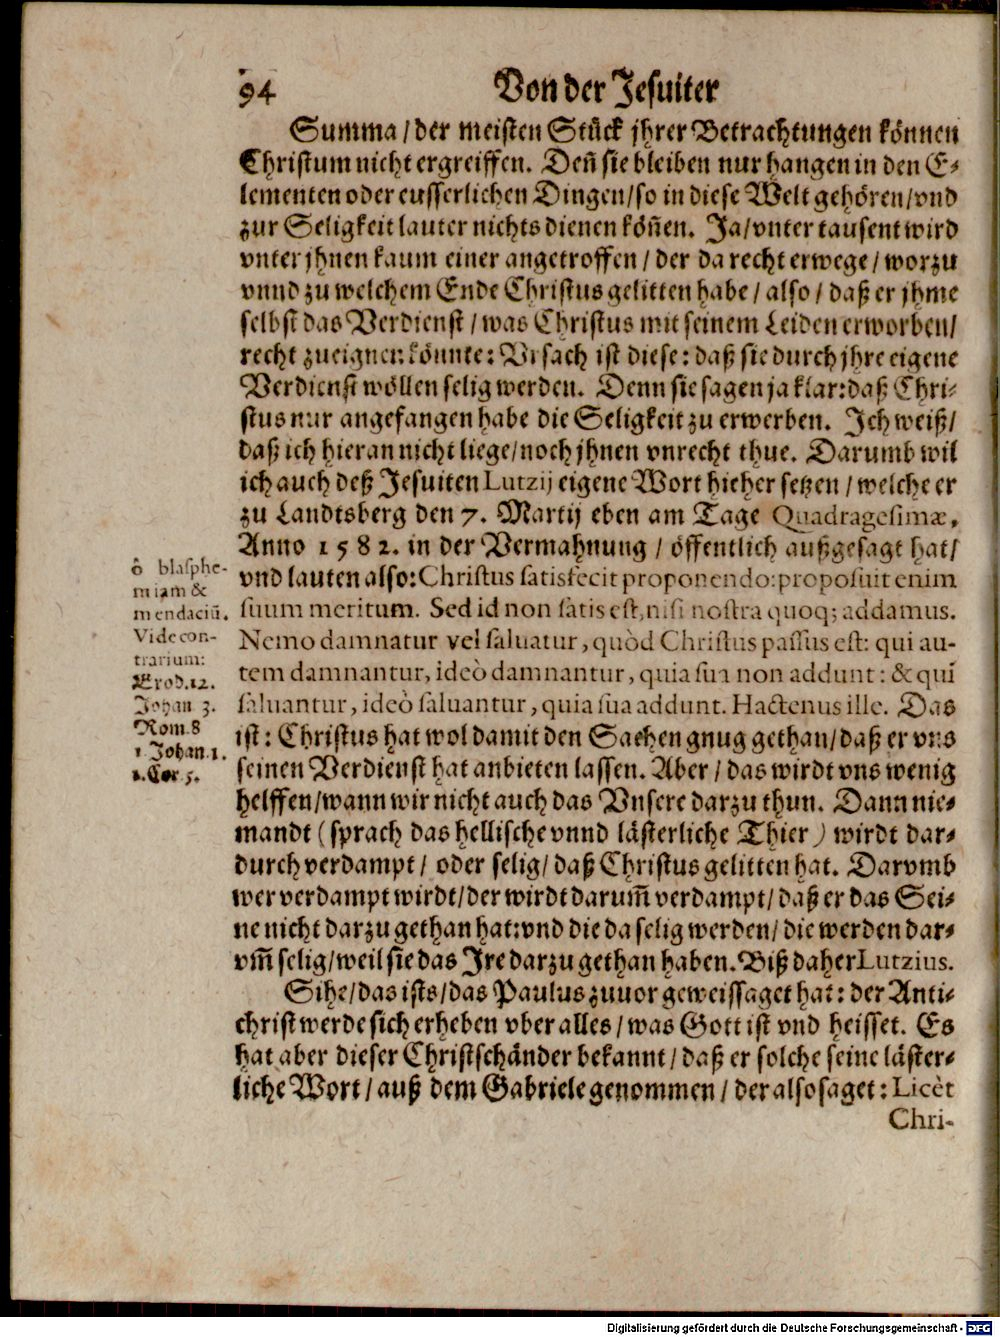 94 Von der Jesuiter
Summa / der meisten Stück jhrer Betrachtungen können
Christum nicht ergreiffen. Deñ sie bleiben nur hangen in den E-
lementen oder eusserlichen Dingen / so in diese Welt gehören / vnd
zur Seligkeit lauter nichts dienen köñen. Ja / vnter tausent wird
vnter jhnen kaum einer angetroffen / der da recht erwege / worzu
vnnd zu welchem Ende Christus gelitten habe / also / daß er jhme
selbst das Verdienst / was Christus mit seinem Leiden erworben /
recht zueignen könnte: Vrsach ist diese: daß sie durch jhre eigene
Verdienst wöllen selig werden. Denn sie sagen ja klar: daß Chri-
stus nur angefangen habe die Seligkeit zu erwerben. Ich weiß /
daß ich hieran nicht liege / noch jhnen vnrecht thue. Darumb wil
ich auch deß Jesuiten Lutzij eigene Wort hieher setzen / welche er
zu Landtsberg den 7. Martij eben am Tage Quadragesimæ,
Anno 1582. in der Vermahnung / öffentlich außgesagt hat /
vnd lauten also: Christus satisfecit proponendo: proposuit enim
suum meritum. Sed id non satis est, nisi nostra quoq; addamus.
Nemo damnatur vel saluatur, quòd Christus passus est: qui au-
tem damnantur, ideò damnantur, quia sua non addunt: & qui
saluantur, ideò saluantur, quia sua addunt. Hactenus ille. Das
ist: Christus hat wol damit den Sachen gnug gethan / daß er vns
seinen Verdienst hat anbieten lassen. Aber / das wirdt vns wenig
helffen / wann wir nicht auch das Vnsere darzu thun. Dann nie-
mandt ( sprach das hellische vnnd lästerliche Thier ) wirdt dar-
durch verdampt / oder selig / daß Christus gelitten hat. Darvmb
wer verdampt wirdt / der wirdt darum̃ verdampt / daß er das Sei-
ne nicht darzu gethan hat: vnd die da selig werden / die werden dar-
vm̃ selig / weil sie das Ire darzu gethan haben. Biß daher Lutzius.
Sihe / das ists / das Paulus zuuor geweissaget hat: der Anti-
christ werde sich erheben vber alles / was Gott ist vnd heisset. Es
hat aber dieser Christschänder bekannt / daß er solche seine läster-
liche Wort / auß dem Gabriele genommen / der also saget: Licèt
Chri-
ô blasphe-
miam &
mendaciũ.
Vide con-
trarium:
Exod. 12.
Johan 3.
Rom 8
1 Johan. 1.
1. Cor 5.
Digitalisierung gefördert durch die Deutsche Forschungsgemeinschaft - DFG